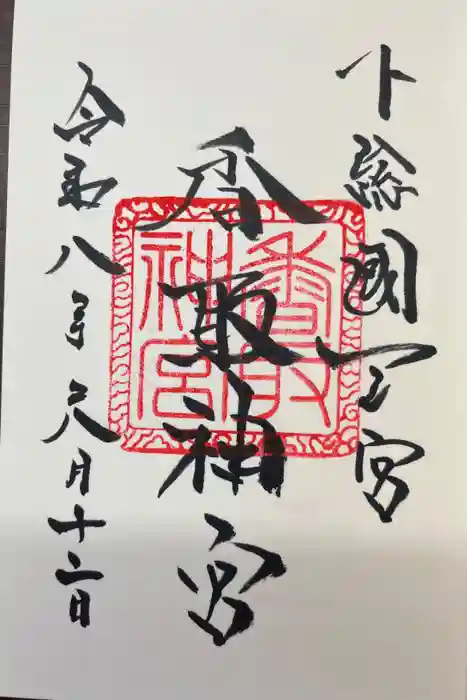 下総國一之宮
香取神宮
令和八年六月十二日
香取
神宮